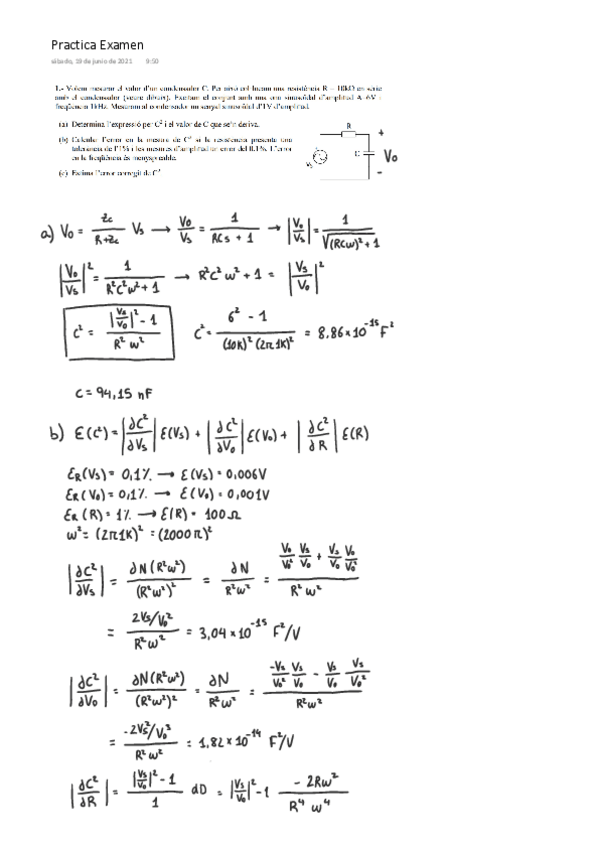 Practica Examen
sábado, 19 de junio de 2021 9:50
1.- Volem mesurar el valor d'un condensador C. Per això col·loquem una resistència R = 10kΩ en sèrie
amb el condensador (veure dibuix). Excitem el conjunt amb una ona sinusoïdal d'amplitud A 6V i
freqüència 1kHz. Mesurem al condensador un senyal sinusoïdal d'1V d'amplitud.
(a) Determina l'expressió per C² i el valor de C que se'n deriva.
(b) Calculeu l'error en la mesura de C² si la resistència presenta una
tolerància de l'1% i les mesures d'amplitud un error del 0.1%. L'error
en la freqüència és menyspreable.
(c) Estima l'error corregit de C²
R
+
Vs
C
Vo
-
a) Vo = Zc / (R+Zc) Vs → Vo/Vs = 1 / (RCs + 1) → |Vo/Vs| = 1 / √((RCω)² + 1)
|Vo/Vs|² = 1 / (R²C²ω² + 1) → R²C²ω² + 1 = |Vs/Vo|²
C² = (|Vs/Vo|² - 1) / (R² ω²) C² = (6² - 1) / ((10K)² (2π 1K)²) = 8.86×10⁻¹⁵ F²
C = 94,15 nF
b) ε(C²) = |∂C²/∂Vs| ε(Vs) + |∂C²/∂Vo| ε(Vo) + |∂C²/∂R| ε(R)
εR(Vs) = 0,1% → ε(Vs) = 0,006V
εR(Vo) = 0,1% → ε(Vo) = 0,001V
εR(R) = 1% → ε(R) = 100 Ω
ω² = (2π 1K)² = (2000 π)²
|∂C²/∂Vs| = ∂N(R²ω²) / (R²ω²)² = ∂N / R²ω² = (Vo/Vo² Vs/Vo + Vs/Vo Vo/Vo²) / R²ω²
= (2Vs/Vo²) / R²ω² = 3,04×10⁻¹⁵ F²/V
|∂C²/∂Vo| = ∂N(R²ω²) / (R²ω²)² = ∂N / R²ω² = (-Vs/Vo² Vs/Vo - Vs/Vo Vs/Vo²) / R²ω²
= (-2Vs²/Vo³) / R²ω² = 1,82×10⁻¹⁴ F²/V
|∂C²/∂R| = (|Vs/Vo|² - 1) / 1 dD = |Vs/Vo|² - 1 (-2Rω²) / (R⁴ ω⁴)